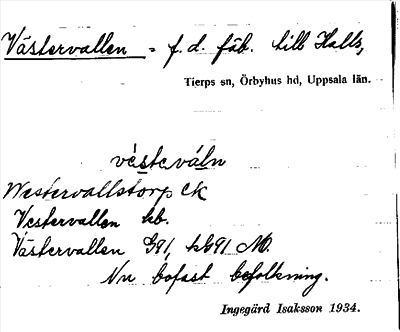 Västervallen = f. d. fäb. till Halls,
Tierps sn, Örbyhus hd, Uppsala län.
västeváln
Westervallstorp CK
Vestervallen kb.
Västervallen G91, kG91 M.
Nu bofast befolkning.
Ingegärd Isaksson 1934.